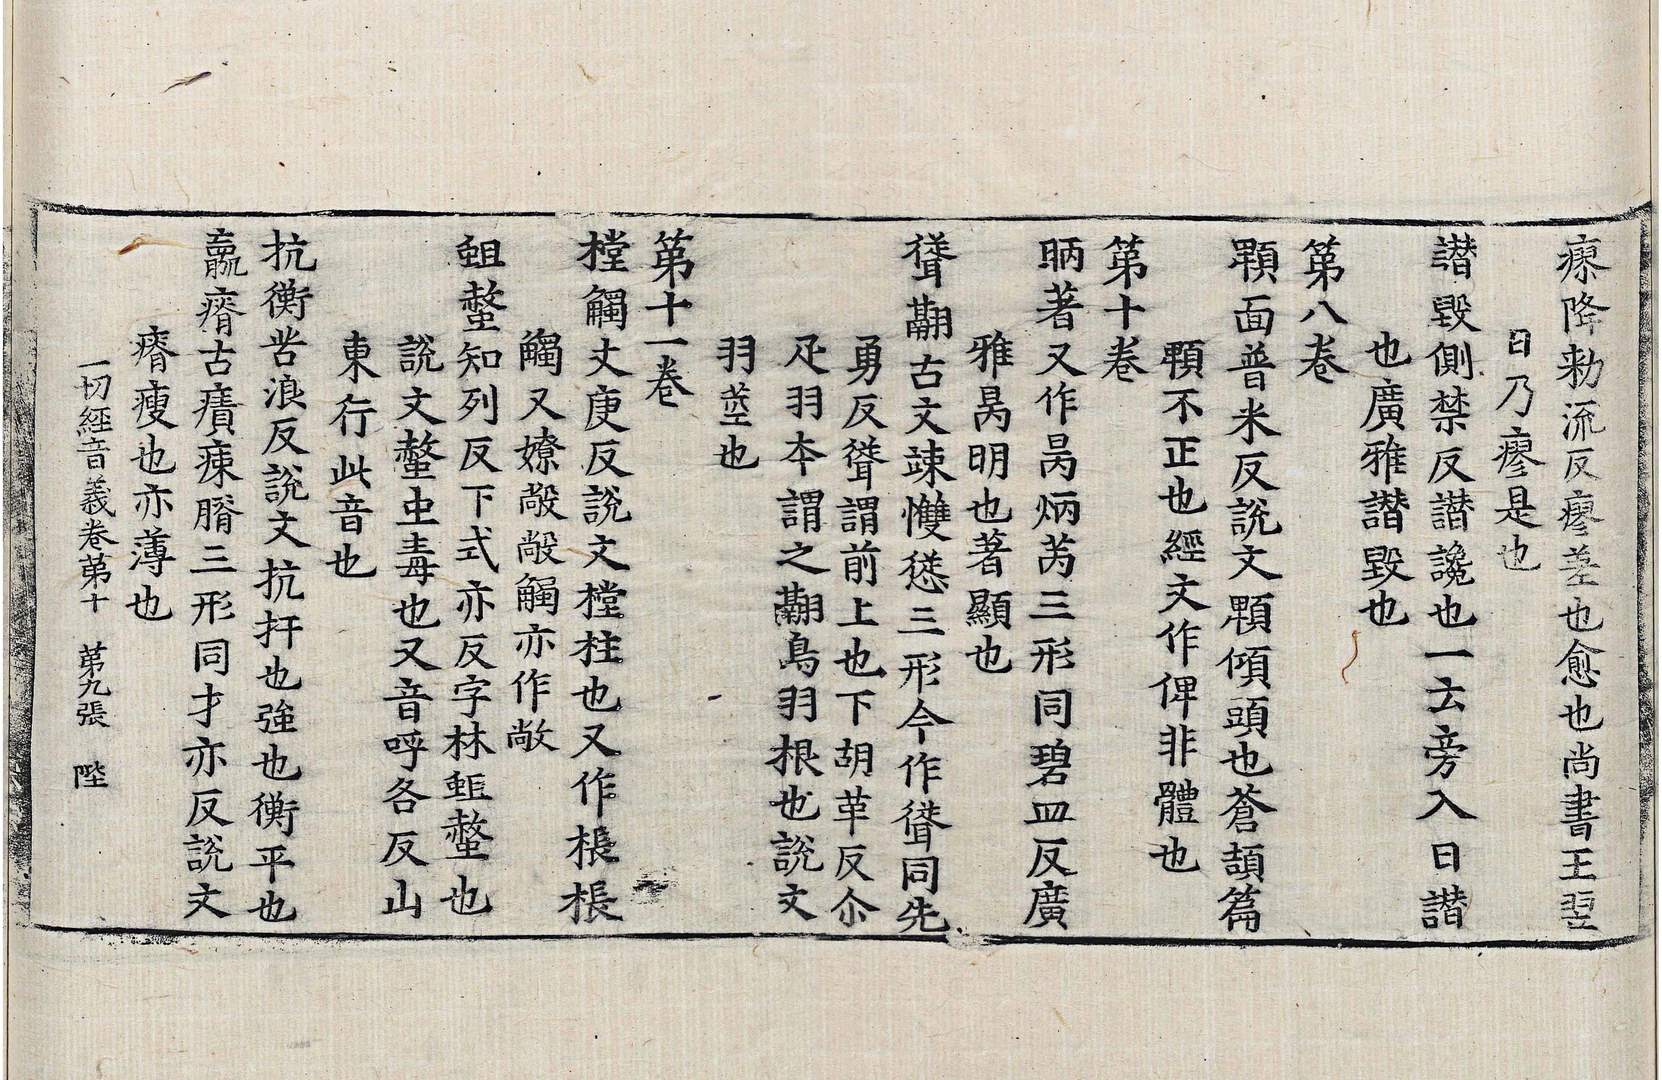 瘳降勑流反瘳差也愈也尚書王翌
日乃瘳是也
譛毀側禁反譛讒也一云旁入曰譛
也廣雅譛毀也
第八卷
顆面普米反說文顆傾頭也蒼頡篇
顆不正也經文作俾非體也
第十卷
昞著又作昺炳苪三形同碧皿反廣
雅昺明也著顯也
聳翮古文竦愯慫三形今作聳同先
勇反聳謂前上也下胡革反尒
疋羽本謂之翮鳥羽根也說文
羽莖也
第十一卷
樘觸丈庚反說文樘柱也又作棖棖
觸又嫽敵敵觸亦作敞
蛆螫知列反下式亦反字林蛆螫也
說文螫虫毒也又音呼各反山
東行此音也
抗衡苦浪反說文抗扞也強也衡平也
羸瘠古㿉㾊膌三形同才亦反說文
瘠瘦也亦薄也
一切經音義卷第十 第九張 陛